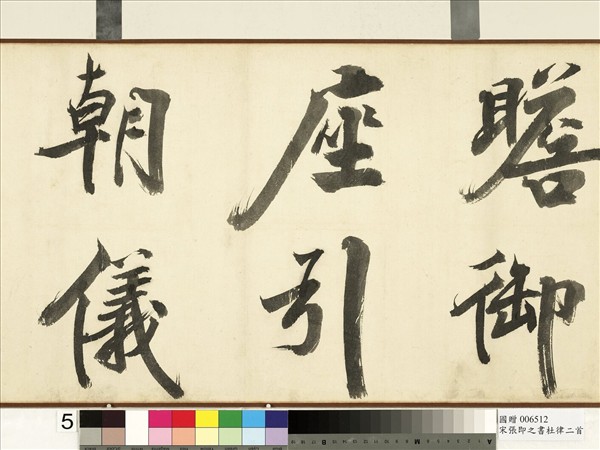 瞻御
座引
朝儀
5
國贈 006512
宋張即之書杜律二首